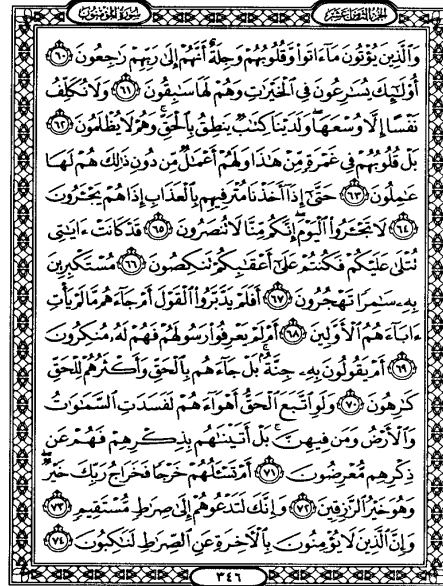 الجزء الثامن عشر
سورة المؤمنون
وَالَّذِينَ يُؤْتُونَ مَا ءَاتَوا وَّقُلُوبُهُمْ وَجِلَةٌ أَنَّهُمْ إِلَىٰ رَبِّهِمْ رَاجِعُونَ ﴿٦٠﴾
أُوْلَٰئِكَ يُسَارِعُونَ فِي الْخَيْرَاتِ وَهُمْ لَهَا سَابِقُونَ ﴿٦١﴾ وَلَا نُكَلِّفُ
نَفْسًا إِلَّا وُسْعَهَا وَلَدَيْنَا كِتَابٌ يَنطِقُ بِالْحَقِّ وَهُمْ لَا يُظْلَمُونَ ﴿٦٢﴾
بَلْ قُلُوبُهُمْ فِي غَمْرَةٍ مِّنْ هَٰذَا وَلَهُمْ أَعْمَالٌ مِّن دُونِ ذَٰلِكَ هُمْ لَهَا
عَامِلُونَ ﴿٦٣﴾ حَتَّىٰ إِذَا أَخَذْنَا مُتْرَفِيهِم بِالْعَذَابِ إِذَا هُمْ يَجْـَٔرُونَ
﴿٦٤﴾ لَا تَجْـَٔرُوا الْيَوْمَ إِنَّكُم مِّنَّا لَا تُنصَرُونَ ﴿٦٥﴾ قَدْ كَانَتْ ءَايَاتِي
تُتْلَىٰ عَلَيْكُمْ فَكُنتُمْ عَلَىٰ أَعْقَابِكُمْ تَنكِصُونَ ﴿٦٦﴾ مُسْتَكْبِرِينَ
بِهِۦ سَامِرًا تَهْجُرُونَ ﴿٦٧﴾ أَفَلَمْ يَدَّبَّرُوا الْقَوْلَ أَمْ جَاءَهُم مَّا لَمْ يَأْتِ
ءَابَاءَهُمُ الْأَوَّلِينَ ﴿٦٨﴾ أَمْ لَمْ يَعْرِفُوا رَسُولَهُمْ فَهُمْ لَهُۥ مُنكِرُونَ
﴿٦٩﴾ أَمْ يَقُولُونَ بِهِۦ جِنَّةٌ بَلْ جَاءَهُم بِالْحَقِّ وَأَكْثَرُهُمْ لِلْحَقِّ
كَارِهُونَ ﴿٧٠﴾ وَلَوِ اتَّبَعَ الْحَقُّ أَهْوَاءَهُمْ لَفَسَدَتِ السَّمَاوَاتُ
وَالْأَرْضُ وَمَن فِيهِنَّ بَلْ أَتَيْنَاهُم بِذِكْرِهِمْ فَهُمْ عَن
ذِكْرِهِم مُّعْرِضُونَ ﴿٧١﴾ أَمْ تَسْـَٔلُهُمْ خَرْجًا فَخَرَاجُ رَبِّكَ خَيْرٌ
وَهُوَ خَيْرُ الرَّازِقِينَ ﴿٧٢﴾ وَإِنَّكَ لَتَدْعُوهُمْ إِلَىٰ صِرَاطٍ مُّسْتَقِيمٍ ﴿٧٣﴾
وَإِنَّ الَّذِينَ لَا يُؤْمِنُونَ بِالْآخِرَةِ عَنِ الصِّرَاطِ لَنَاكِبُونَ ﴿٧٤﴾
٣٤٦